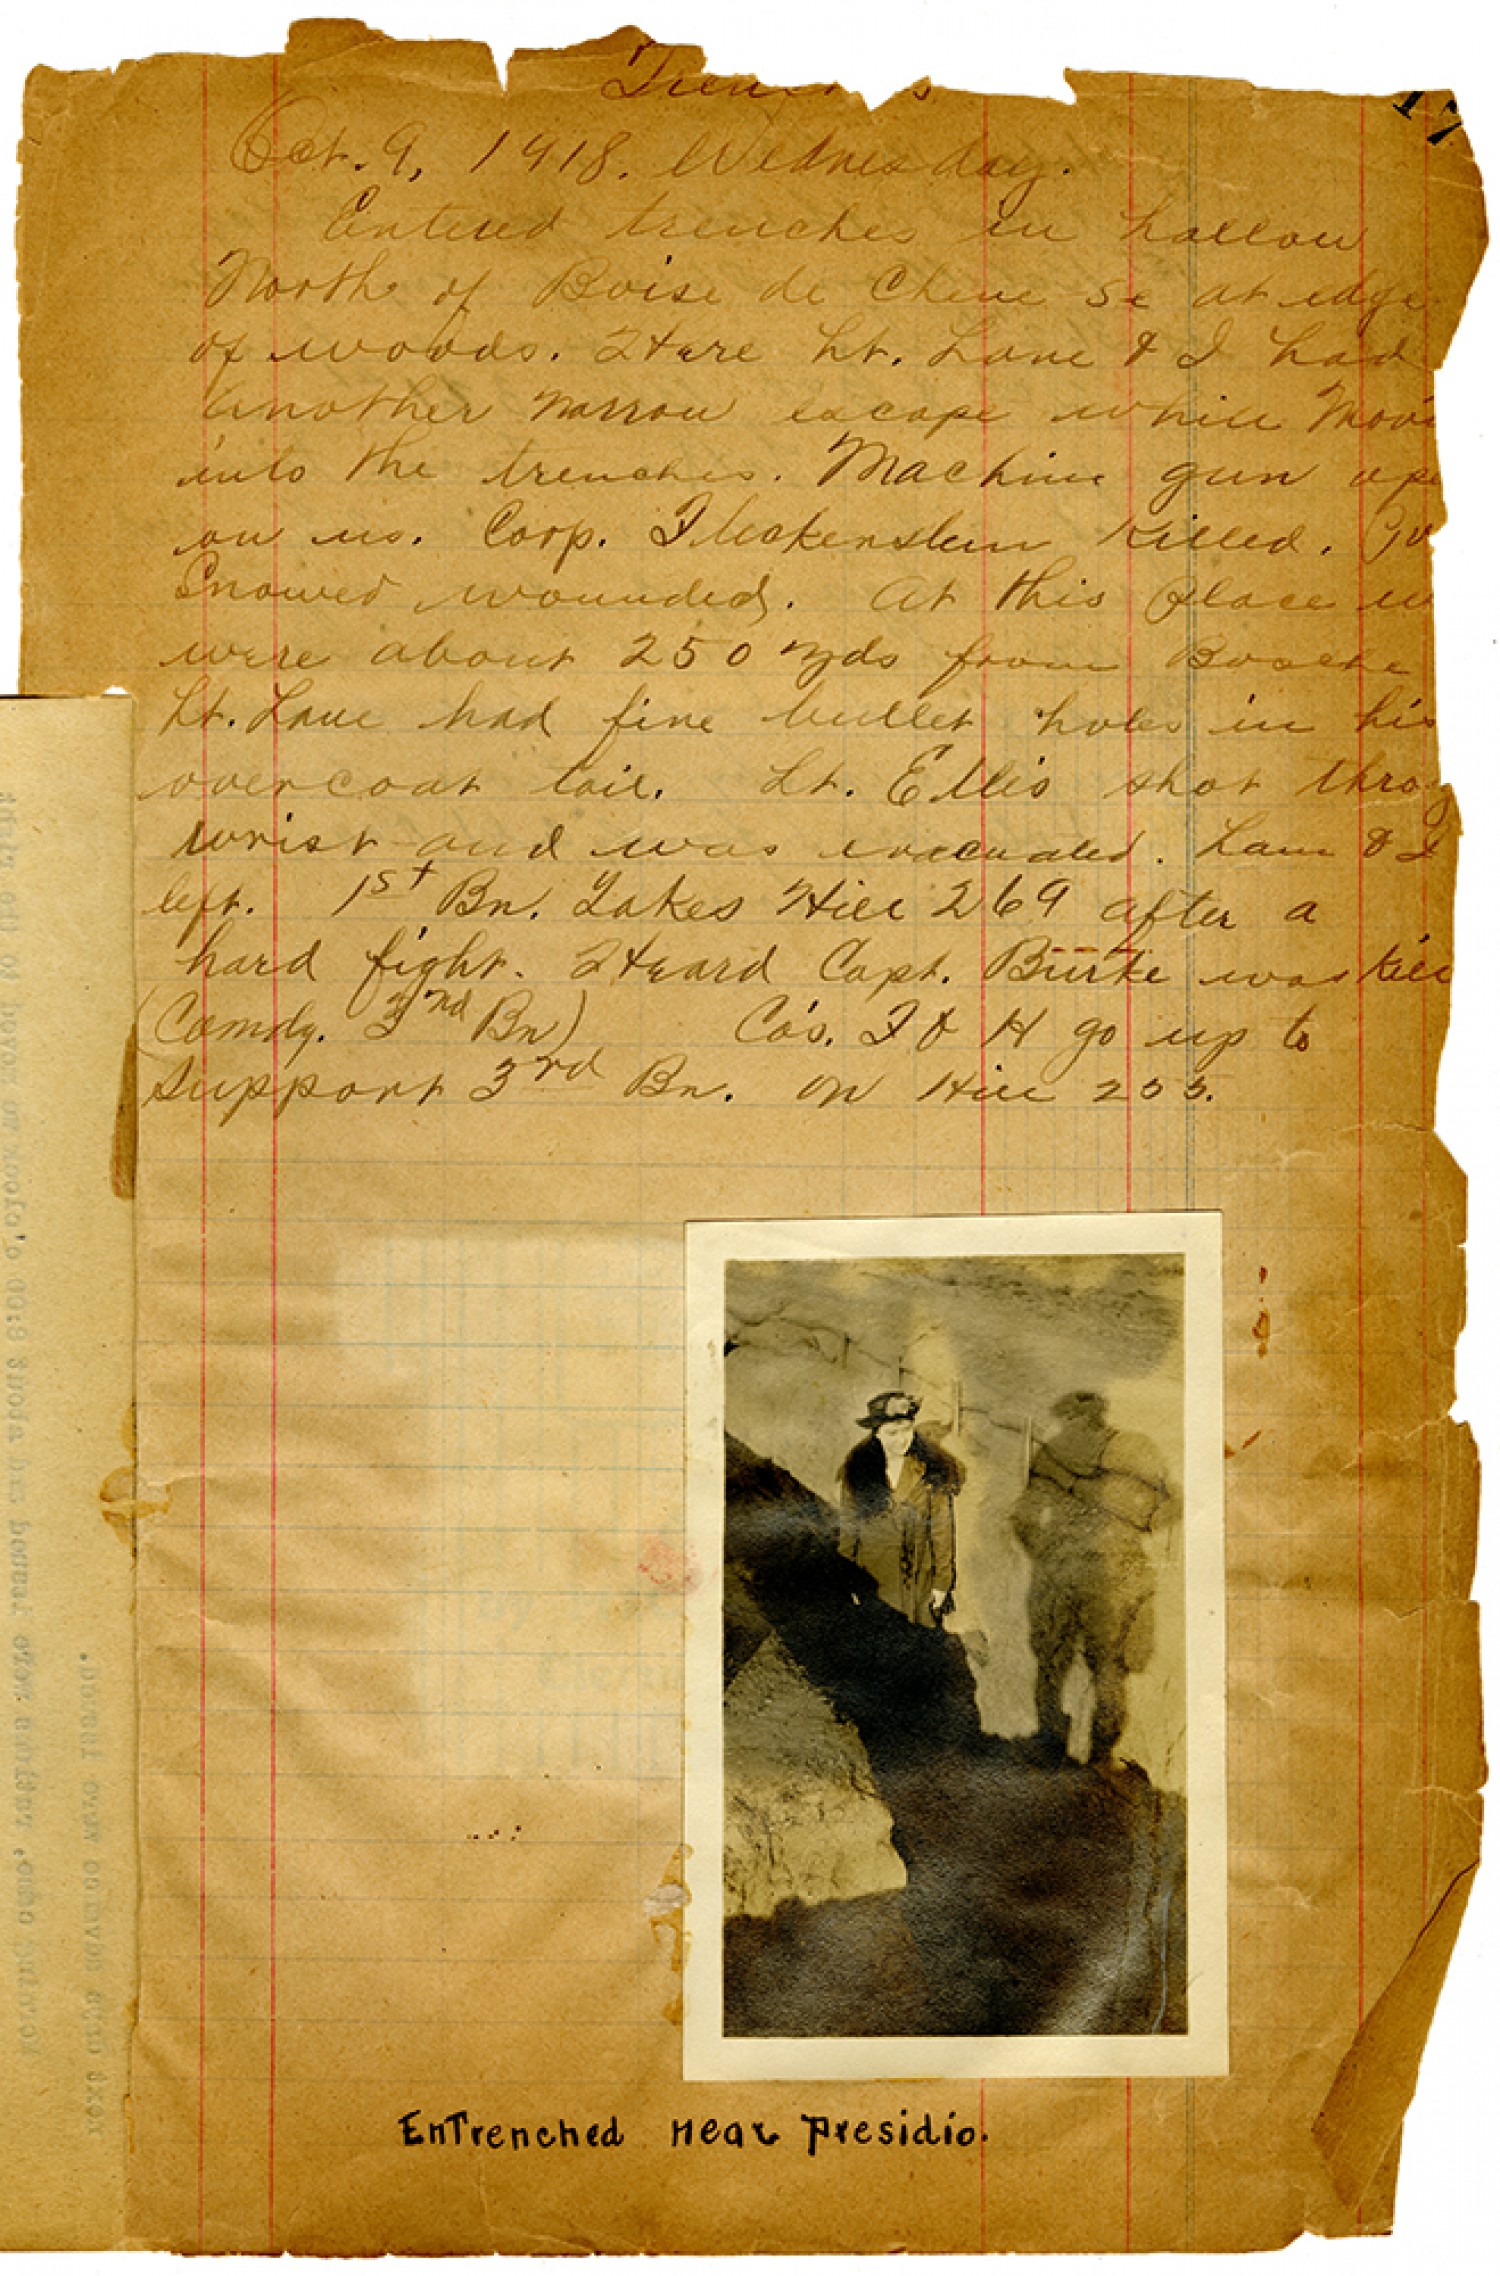 17
Oct. 9, 1918. Wednesday.
Entered trenches in hollow
North of Boise de Chene Se at edge
of woods. Here Lt. Lane & I had
another narrow escape while Mov
into the trenches. Machine gun ope
on us. Corp. Fleckenstein Killed.
Snowed wounded. At this Place w
were about 250 yds from Bosche
Lt. Lane had five bullet holes in his
overcoat tail. Lt. Ellis shot throg
wrist and was evacuated. Lane & I
left. 1st Bn. Takes Hill 269 after a
hard fight. Heard Capt. Burke was kill
(Comdg. 3nd Bn) Co's. F & H go up to
Support 3rd Bn. on Hill 255.
Entrenched near Presidio.